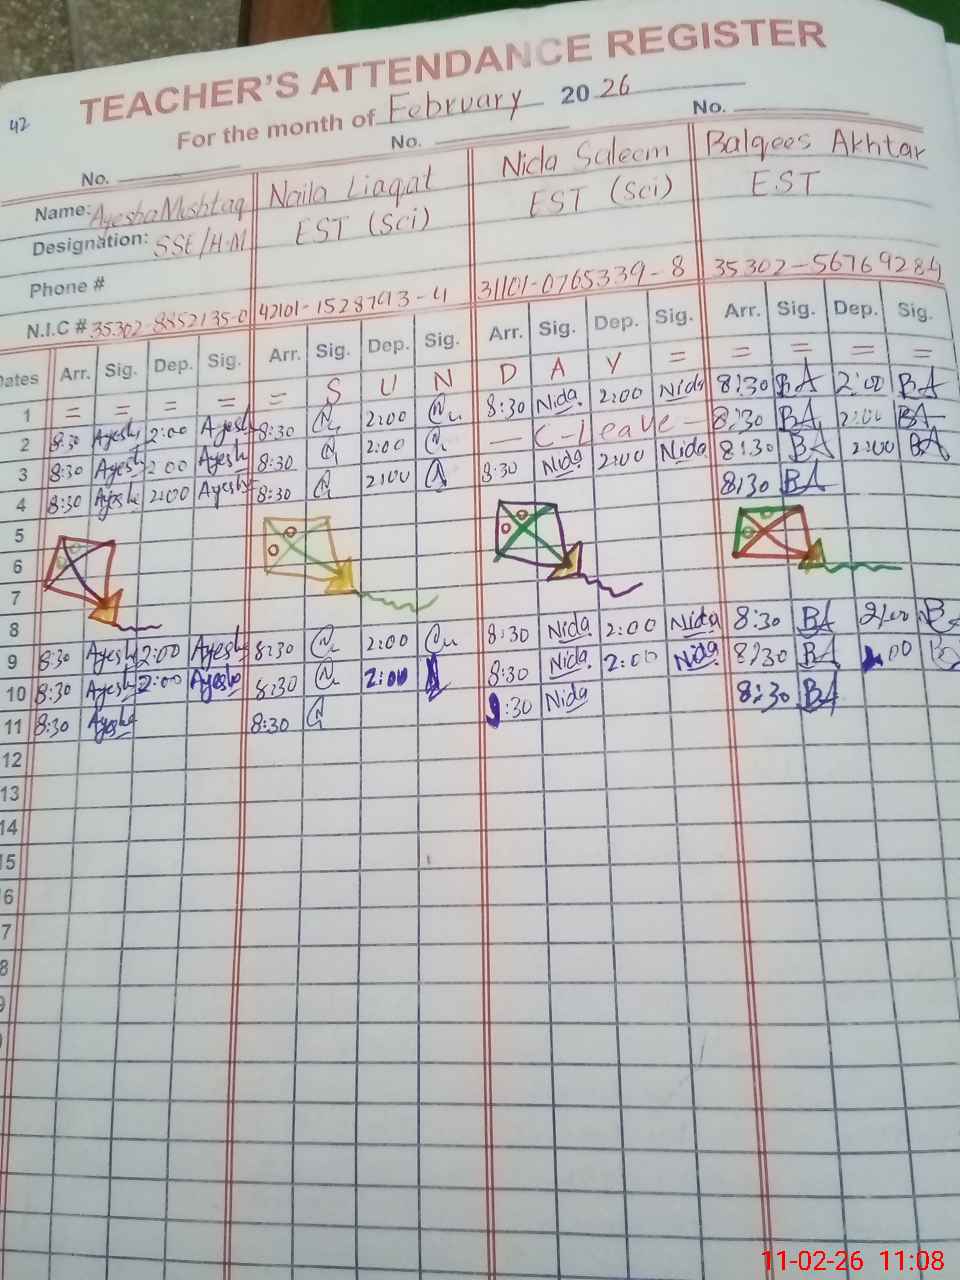 42
TEACHER'S ATTENDANCE REGISTER
For the month of February 2026
No. No. No.
Name: Ayesha Mushtaq Naila Liaqat Nida Saleem Balqees Akhtar
Designation: SSE/H.M EST (Sci) EST (Sci) EST
Phone #
N.I.C # 35302-8852135-0 42101-1528793-4 31101-0765339-8 35302-5676928-4
Dates Arr. Sig. Dep. Sig. Arr. Sig. Dep. Sig. Arr. Sig. Dep. Sig. Arr. Sig. Dep. Sig.
1 = = = = = S U N D A Y = = = = =
2 8:30 Ayesha 2:00 Ayesha 8:30 2:00 8:30 Nida 2:00 Nida 8:30 BA 2:00 BA
3 8:30 Ayesha 2:00 Ayesha 8:30 2:00 — C-Leave — 8:30 BA 2:00 BA
4 8:30 Ayesha 2:00 Ayesha 8:30 2:00 8:30 Nida 2:00 Nida 8:30 BA 2:00 BA
5 8:30 BA
6
7
8
9 8:30 Ayesha 2:00 Ayesha 8:30 2:00 8:30 Nida 2:00 Nida 8:30 BA 2:00 B
10 8:30 Ayesha 2:00 Ayesha 8:30 2:00 8:30 Nida 2:00 Nida 8:30 BA 2:00
11 8:30 Ayesha 8:30 8:30 Nida 8:30 BA
12
13
14
15
6
7
8
11-02-26 11:08